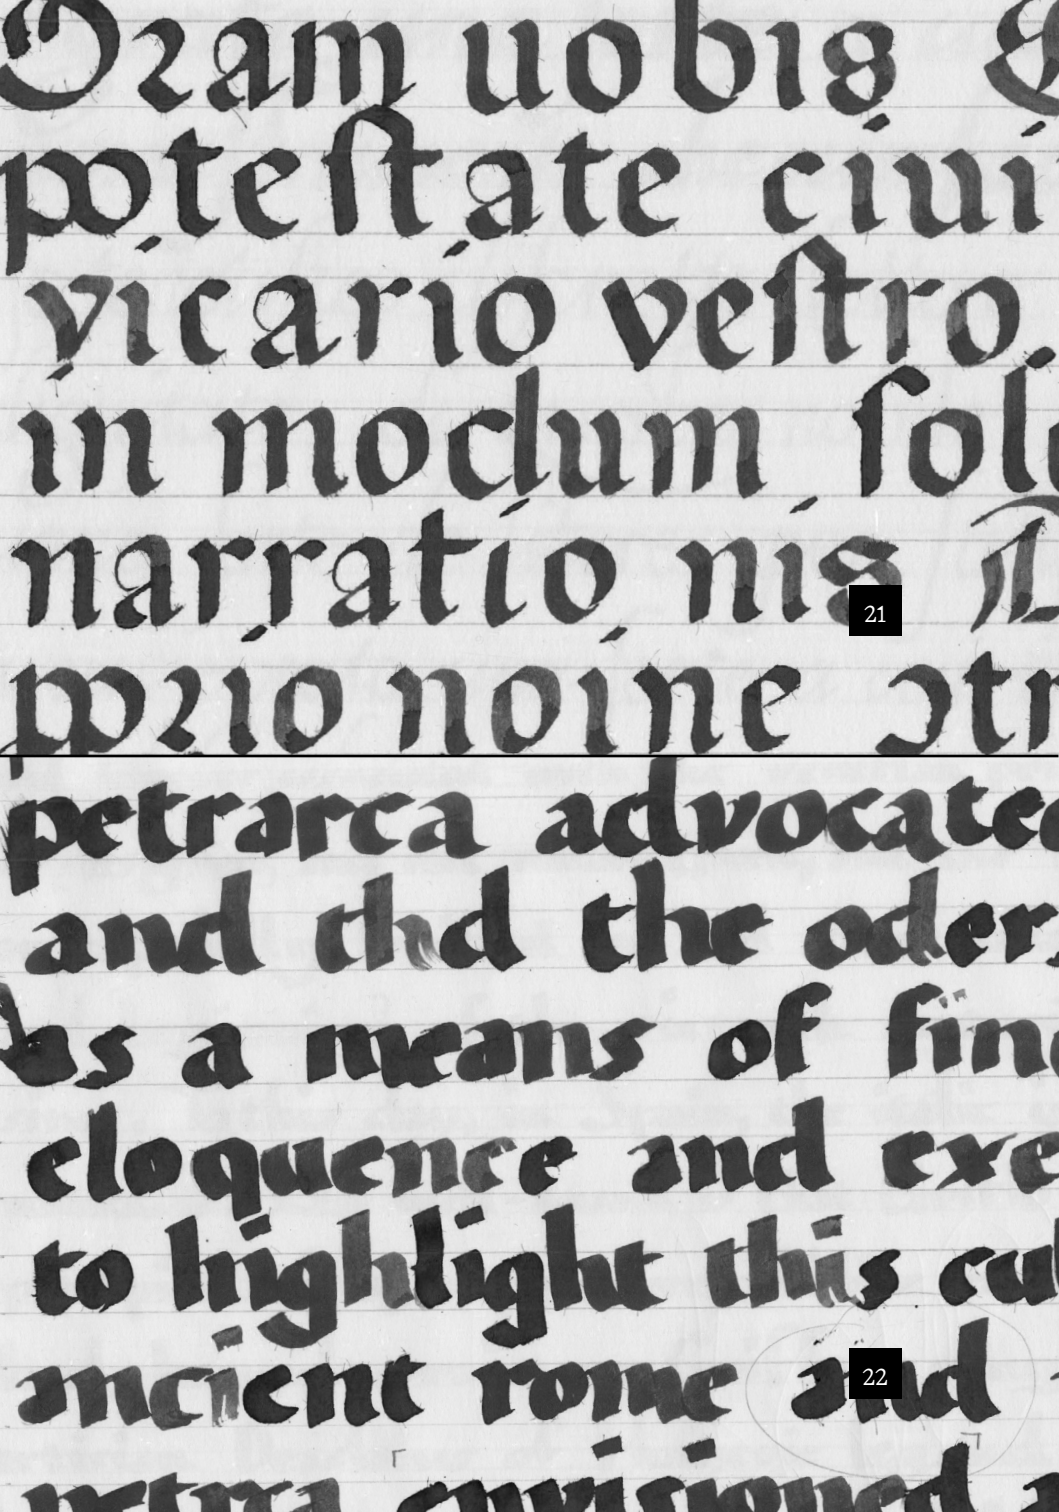 Oꝛam uobis
poteſtate ciui
vicario veſtro.
in modum ſol
narratio nis
21
ꝓpꝛio noine ↄtr
petrarca advocated
and thd the oders
as a means of fin
eloquence and exe
to highlight this cul
ancient rome and
22
petrra envisioned